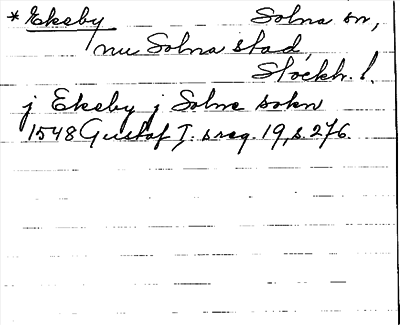 *Ekeby Solna sn,
nu Solna stad,
Stockh. l.
j Ekeby j Solne sokn
1548 Gustaf I:s reg. 19, s. 276.